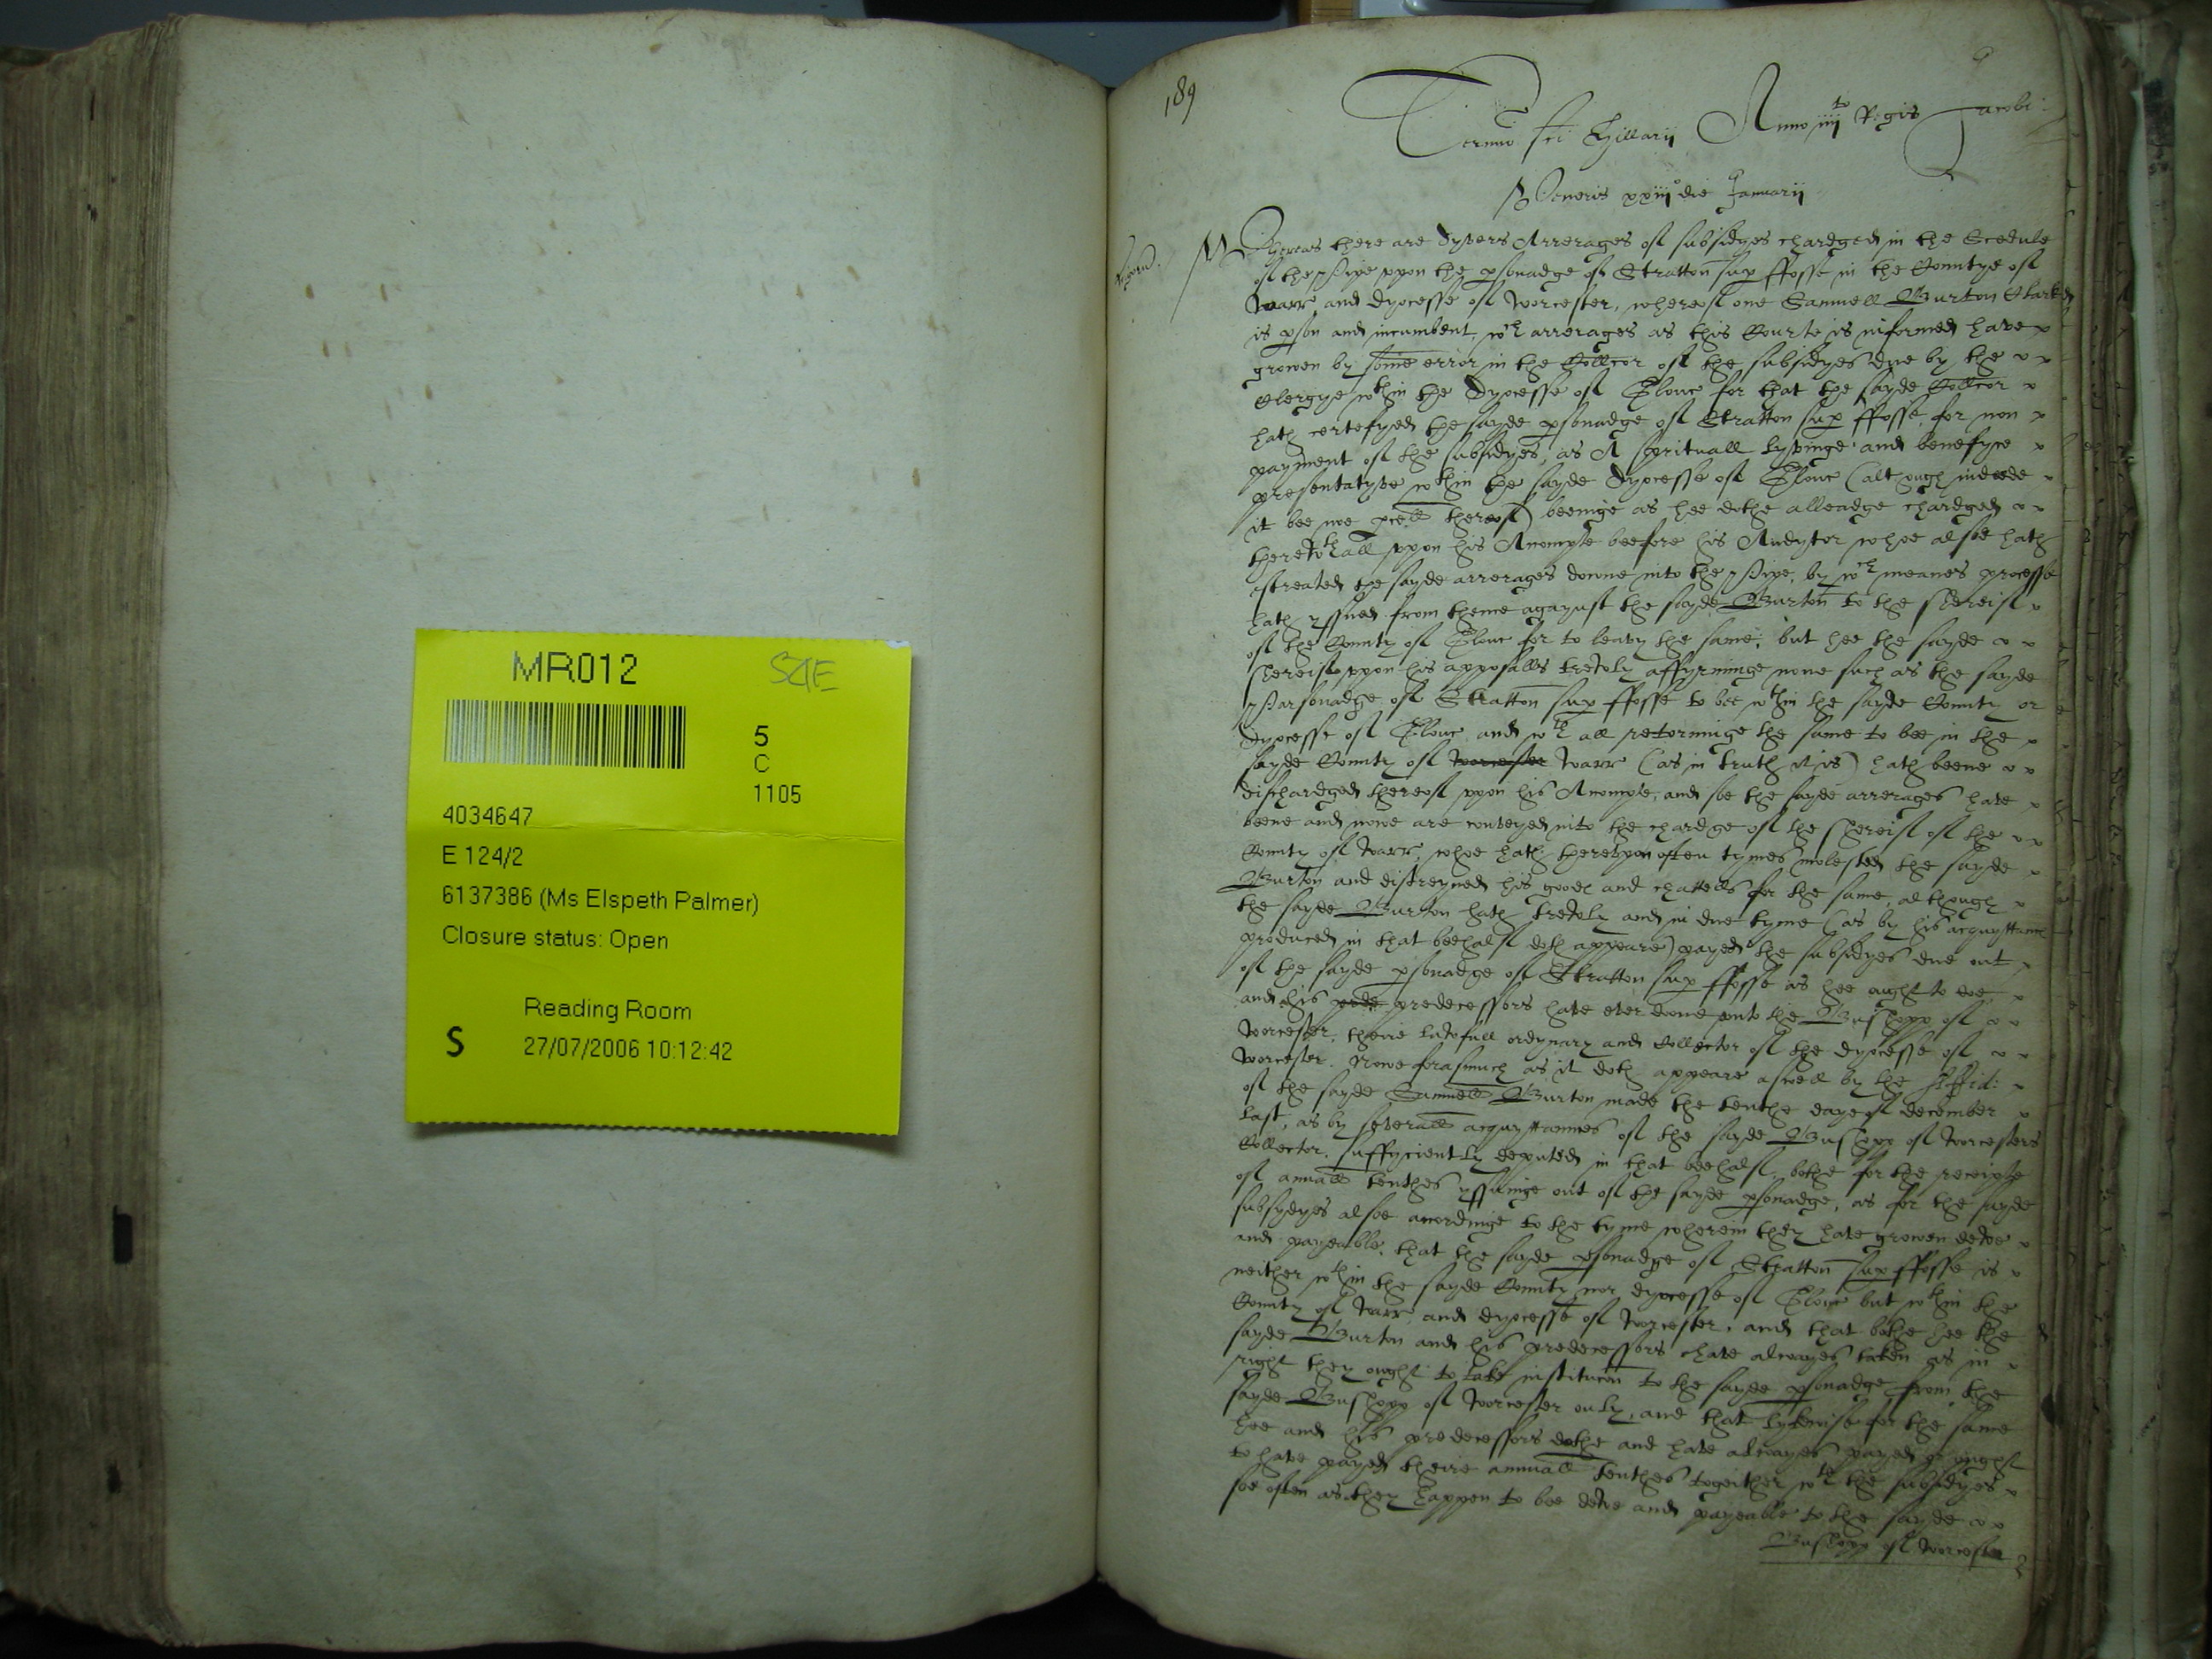 MR012
SZIE
5
C
1105
4034647
E 124/2
6137386 (Ms Elspeth Palmer)
Closure status: Open
Reading Room
S
27/07/2006 10:12:42
189
Termino sci Hillarii Anno iiiito Regis Jacobi
Veneris xxiijo die Januarii
Whereas there are dyvers Arrerages of subsidyes chardged in the Scedule
of the Pipe uppon the psonadge of Stratton sup ffosse in the Countye of
Warr and dyocesse of Worcester, whereof one Samuell Burton Clarke
is pson and incumbent, wch arrerages as this Courte is informed have
growen by some error in the Collcor of the subsidyes due by the
Clergye wthin the Dyocesse of Glouc for that the sayde Collcor
hath certefyed the sayde psonadge of Stratton sup ffosse, for non
payment of the subsidyes, as A spirituall lyvinge and benefyce
presentatyve wthin the sayde Dyocesse of Glouc (although indeede
it bee noe pcell thereof) beeinge as hee dothe alleadge chardged
therewthall uppon his Accompte beefore his Audytor whoe alsoe hath
estreated the sayde arrerages downe into the Pipe, by wch meanes processe
hath yssued from thence agaynst the sayde Burton to the Shereif
of the County of Glouc for to leavy the same, but hee the sayde
Shereif uppon his apposalls trewly affyrminge none such as the sayde
Parsonadge of Stratton sup ffosse to bee wthin the sayde County or
Dyocesse of Glouc, and wth all retorninge the same to bee in the
sayde County of worcester Warr (as in truth it is) hath beene
dischardged thereof uppon his Accompte, and soe the sayde arrerages have
beene and nowe are conveyed into the chardge of the Shereif of the
County of Warr, whoe hath thereupon often tymes molested the sayde
Burton and distreyned his goods and chattells for the same, although
the sayde Burton hath trewly and in due tyme (as by his acquyttance
produced in that beehalf doth appeare) payed the subsidyes due out
of the sayde psonadge of Stratton sup ffosse as hee ought to doe,
and his predecessors have ever donne unto the Busshopp of
Worcester, theire lawfull ordynary and Collector of the dyocesse of
Worcester. Nowe forasmuch as it doth appeare aswell by the Affid:
of the sayde Samuell Burton made the tenthe daye of december
last, as by severall acquyttannces of the sayde Busshopp of Worcesters
Collector, suffyciently deputed in that beehalf, bothe for the receipte
of annuall tenthes yssuinge out of the sayde psonadge, as for the sayde
subsydyes alsoe accordinge to the tyme wherein they have growen dewe
and payeable, that the sayde psonadge of Stratton sup ffosse is
neither wthin the sayde County nor dyocesse of Glouc but wthin the
County of Warr and dyocesse of Worcester, and that bothe hee the
sayde Burton and his predecessors have alwayes taken as in
right they ought to take institucon to the sayde psonadge from the
sayde Busshopp of Worcester only, and that lykewise for the same
hee and his predecessors dothe and have alwayes payed or ought
to have payed theire annuall tenthes togeither wth the subsidyes
soe often as they happen to bee dewe and payeable to the sayde
Busshopp of Worcester